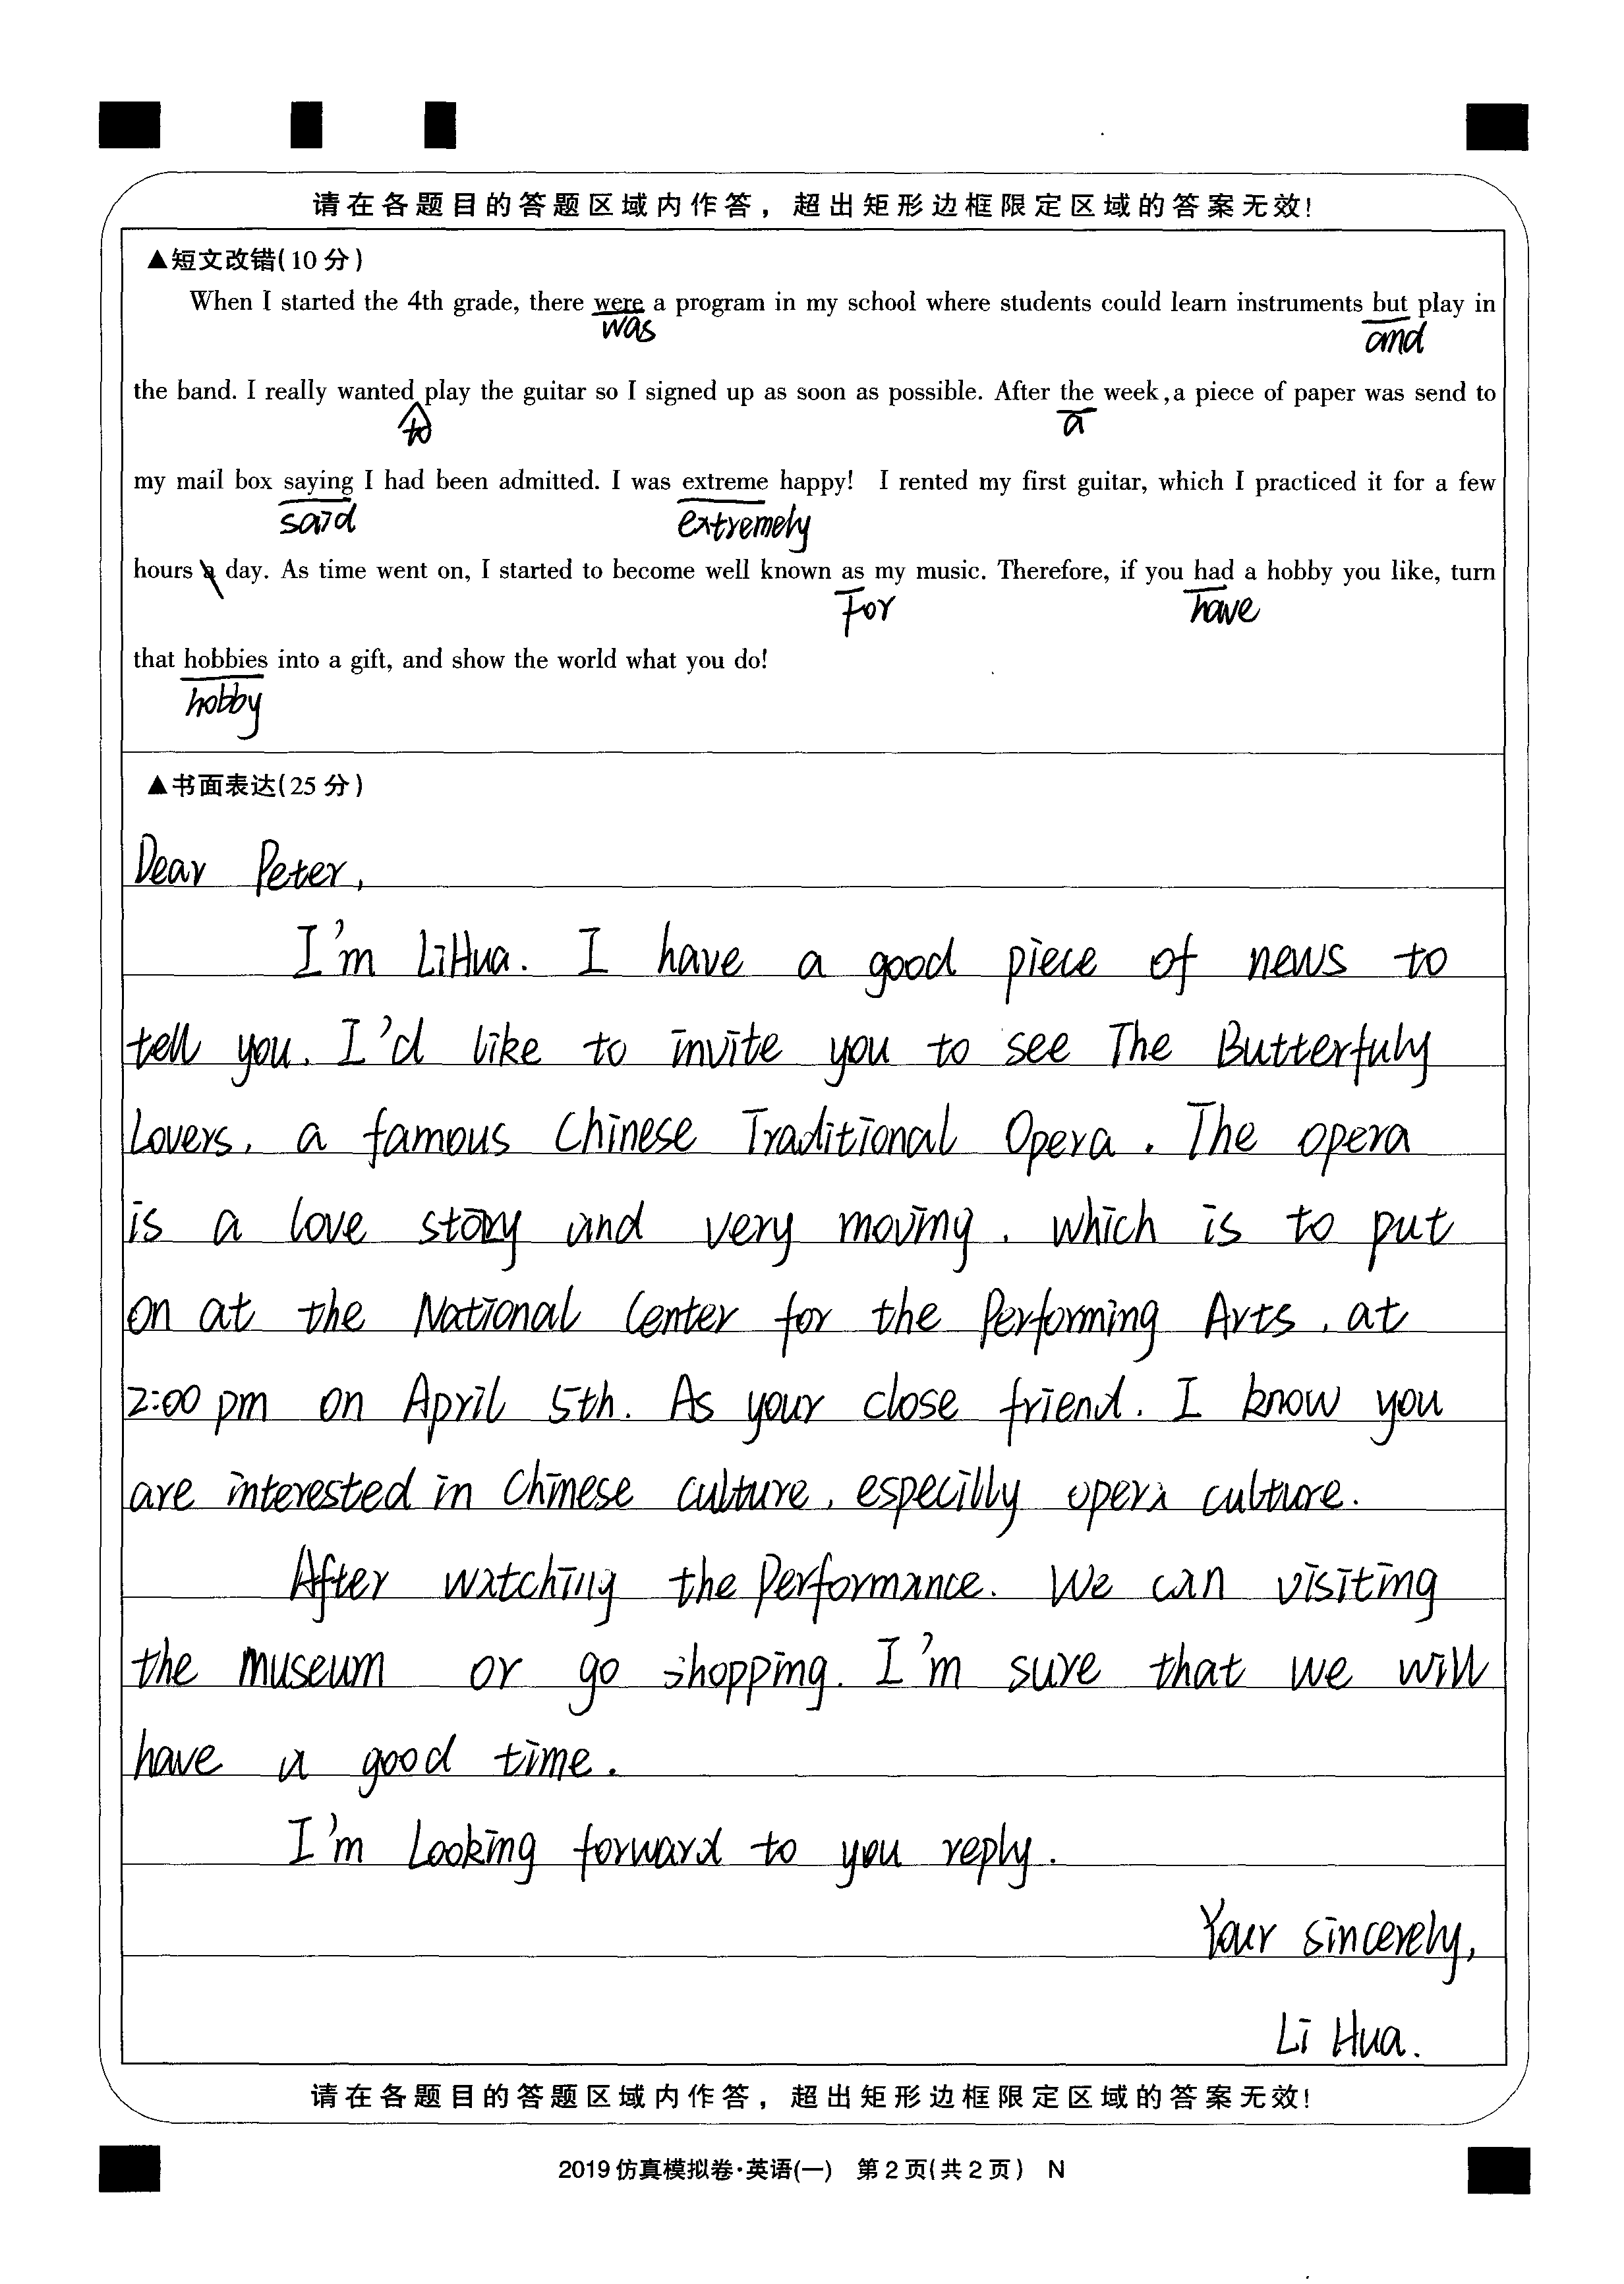 请在各题目的答题区域内作答，超出矩形边框限定区域的答案无效!
▲短文改错(10分)
When I started the 4th grade, there were a program in my school where students could learn instruments but play in
was and
the band. I really wanted play the guitar so I signed up as soon as possible. After the week,a piece of paper was send to
to a
my mail box saying I had been admitted. I was extreme happy! I rented my first guitar, which I practiced it for a few
said extremely
hours a day. As time went on, I started to become well known as my music. Therefore, if you had a hobby you like, turn
For have
that hobbies into a gift, and show the world what you do!
hobby
▲书面表达(25分)
Dear Peter,
I'm LiHua. I have a good piece of news to
tell you. I'd like to invite you to see The Butterfuly
Lovers, a famous Chinese Traditional Opera. The opera
is a love story and very moving, which is to put
on at the National Center for the Performing Arts, at
2:00 pm on April 5th. As your close friend. I know you
are interested in Chinese culture, especilly opera culture.
After watching the performance. We can visiting
the museum or go shopping. I'm sure that we will
have a good time.
I'm Looking forward to you reply.
Your sincerely,
Li Hua.
请在各题目的答题区域内作答，超出矩形边框限定区域的答案无效!
2019仿真模拟卷·英语(一) 第2页(共2页) N